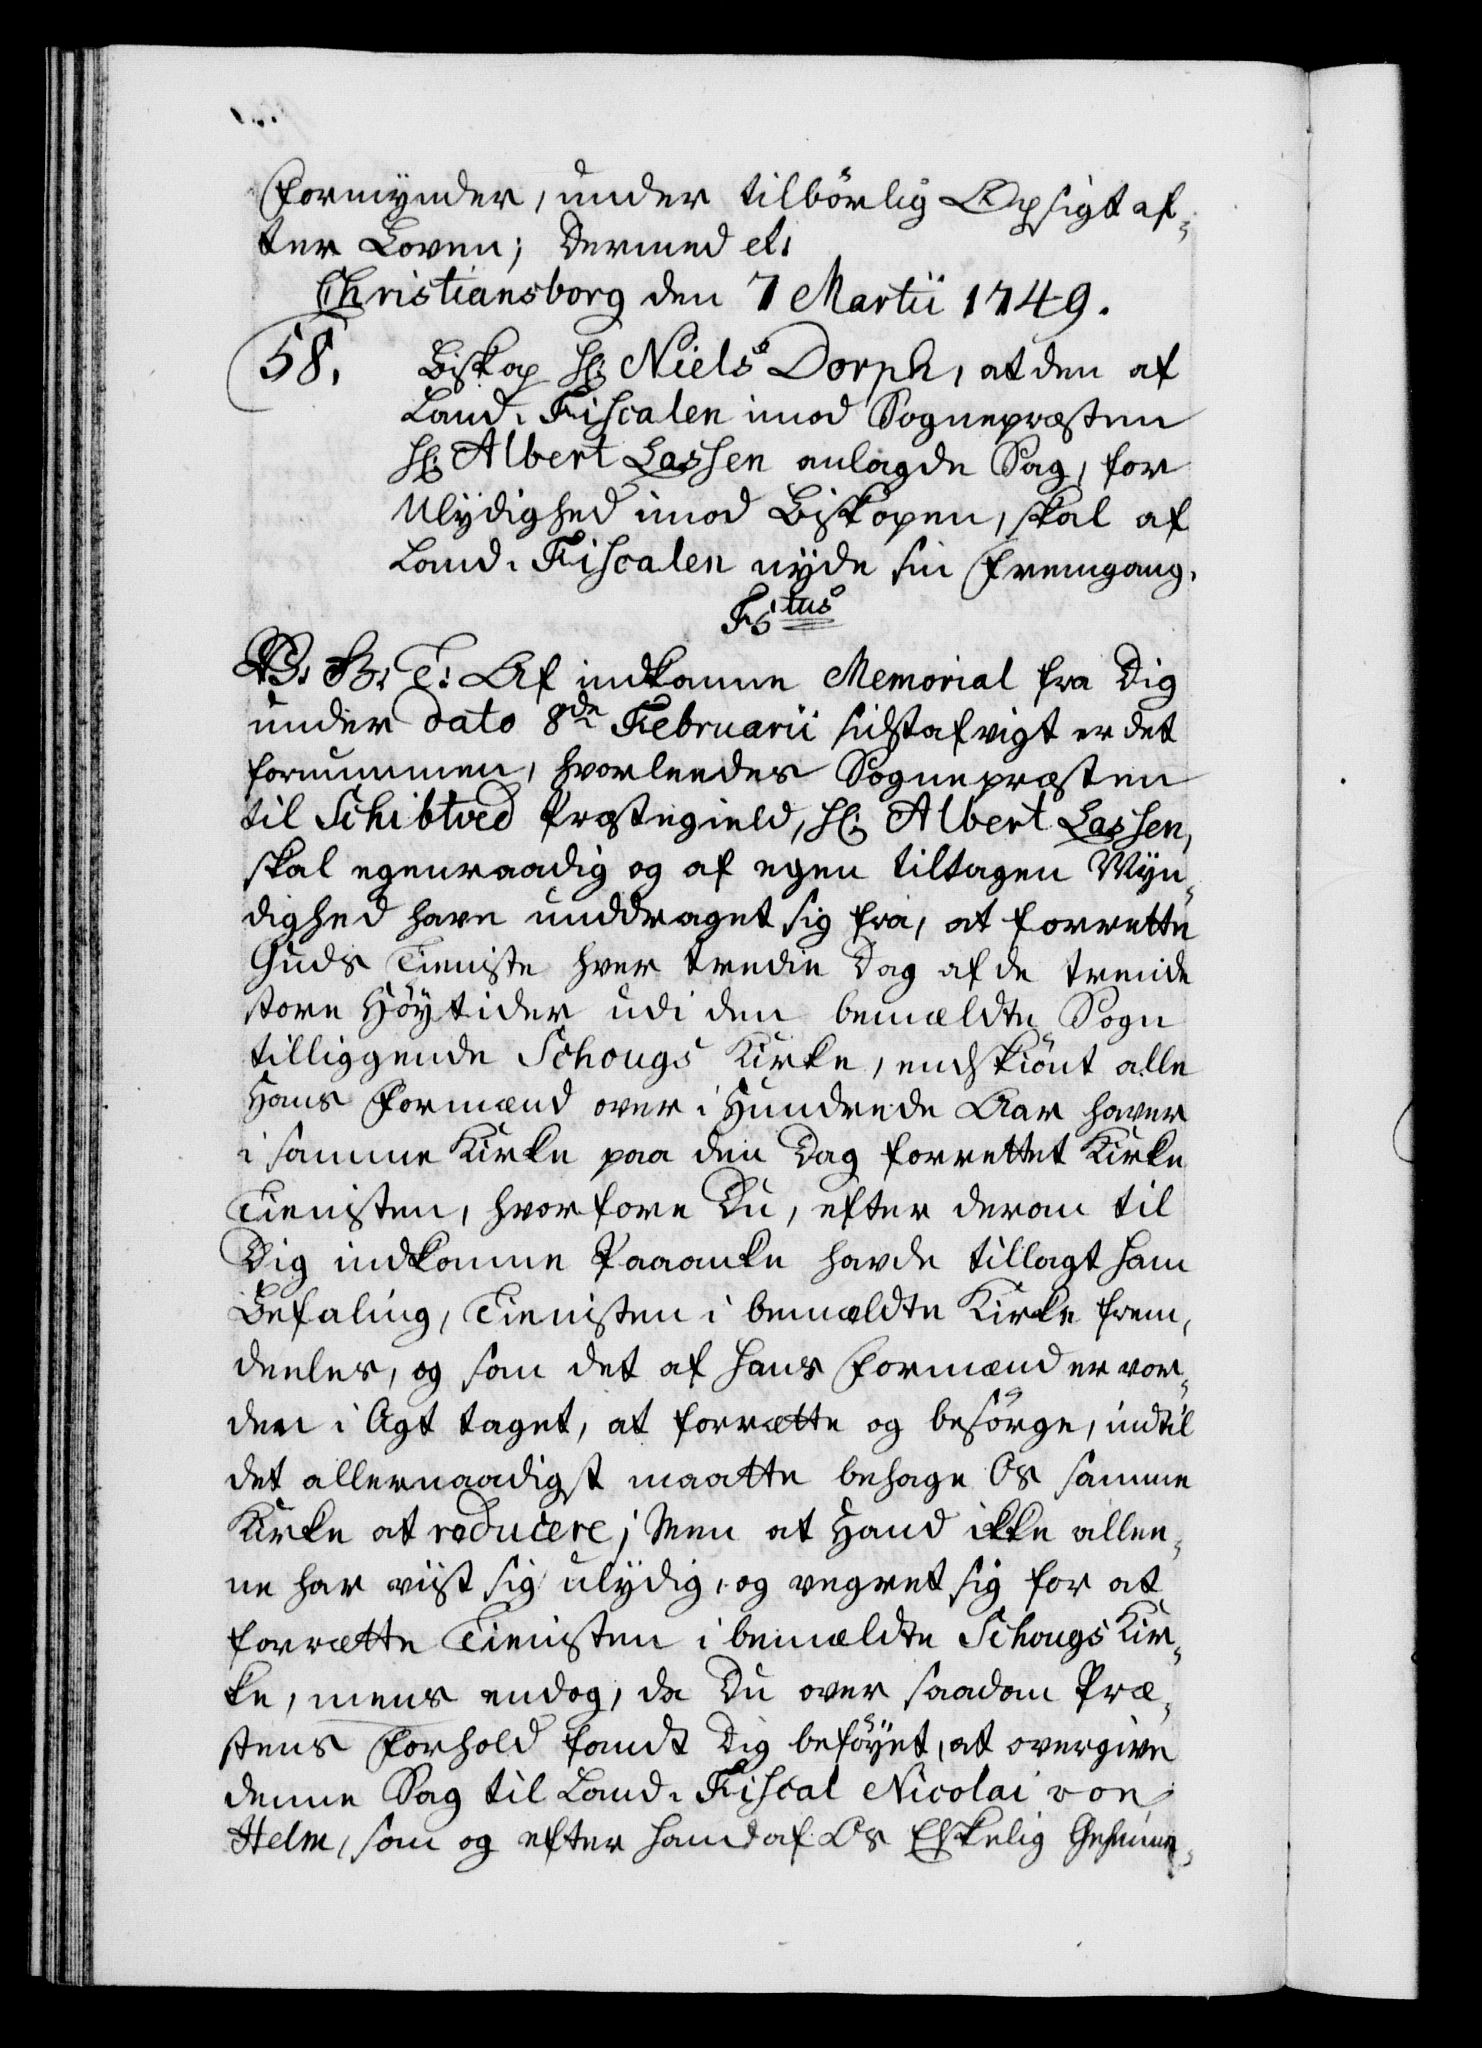 Formynder, under tilbörlig Opsigt ef-
ter Loven; Dermed etc
Christiansborg den 7 Martii 1749.
58. Biskop Hr: Niels Dorph, at den af
Land-Fiscalen imod Sognepræsten
Hr: Albert Lassen anlagde Sag, for
Ulydighed imod Biskopen, skal af
Land-Fiscalen nyde sin Fremgang.
F5tus
V. G. T: Af indkomne Memorial fra Dig
under dato 8de Februarii sidstafvigt er det
fornummen, hvorleedes Sognepræsten
til Schibtved Præstegield, Hr: Albert Lassen,
skal egenraadig og af egen tiltagen Myn-
dighed have unddraget sig fra, at forrette
Guds Tieniste hver tredie Dag af de trende
store Höytider udi den bemældte Sogn
tilliggende Schougs Kirke, endskiönt alle
Hans Formænd over i Hundrede Aar haver
i samme Kirke paa den Dag forrettet Kirke
Tienisten, hvorfore Du, efter derom til
Dig indkomne Paaanke havde tillagt ham
Befaling, Tienisten i bemældte Kirke frem-
deeles, og som det af hans Formænd er vor-
den i Agt taget, at forrætte og besörge, indtil
det allernaadigst maatte behage Os samme
Kirke at reducere; Men at Hand ikke allee-
ne har viist sig ulydig, og vegret sig for at
forrætte Tienisten i bemældte Schougs Kir-
ke, mens endog, da Du over saadan Præ-
stens Forhold fandt Dig beföyet, at overgive
denne Sag til Land-Fiscal Nicolai von
Helm, som og efter hand af Os Elskelig Geheime-